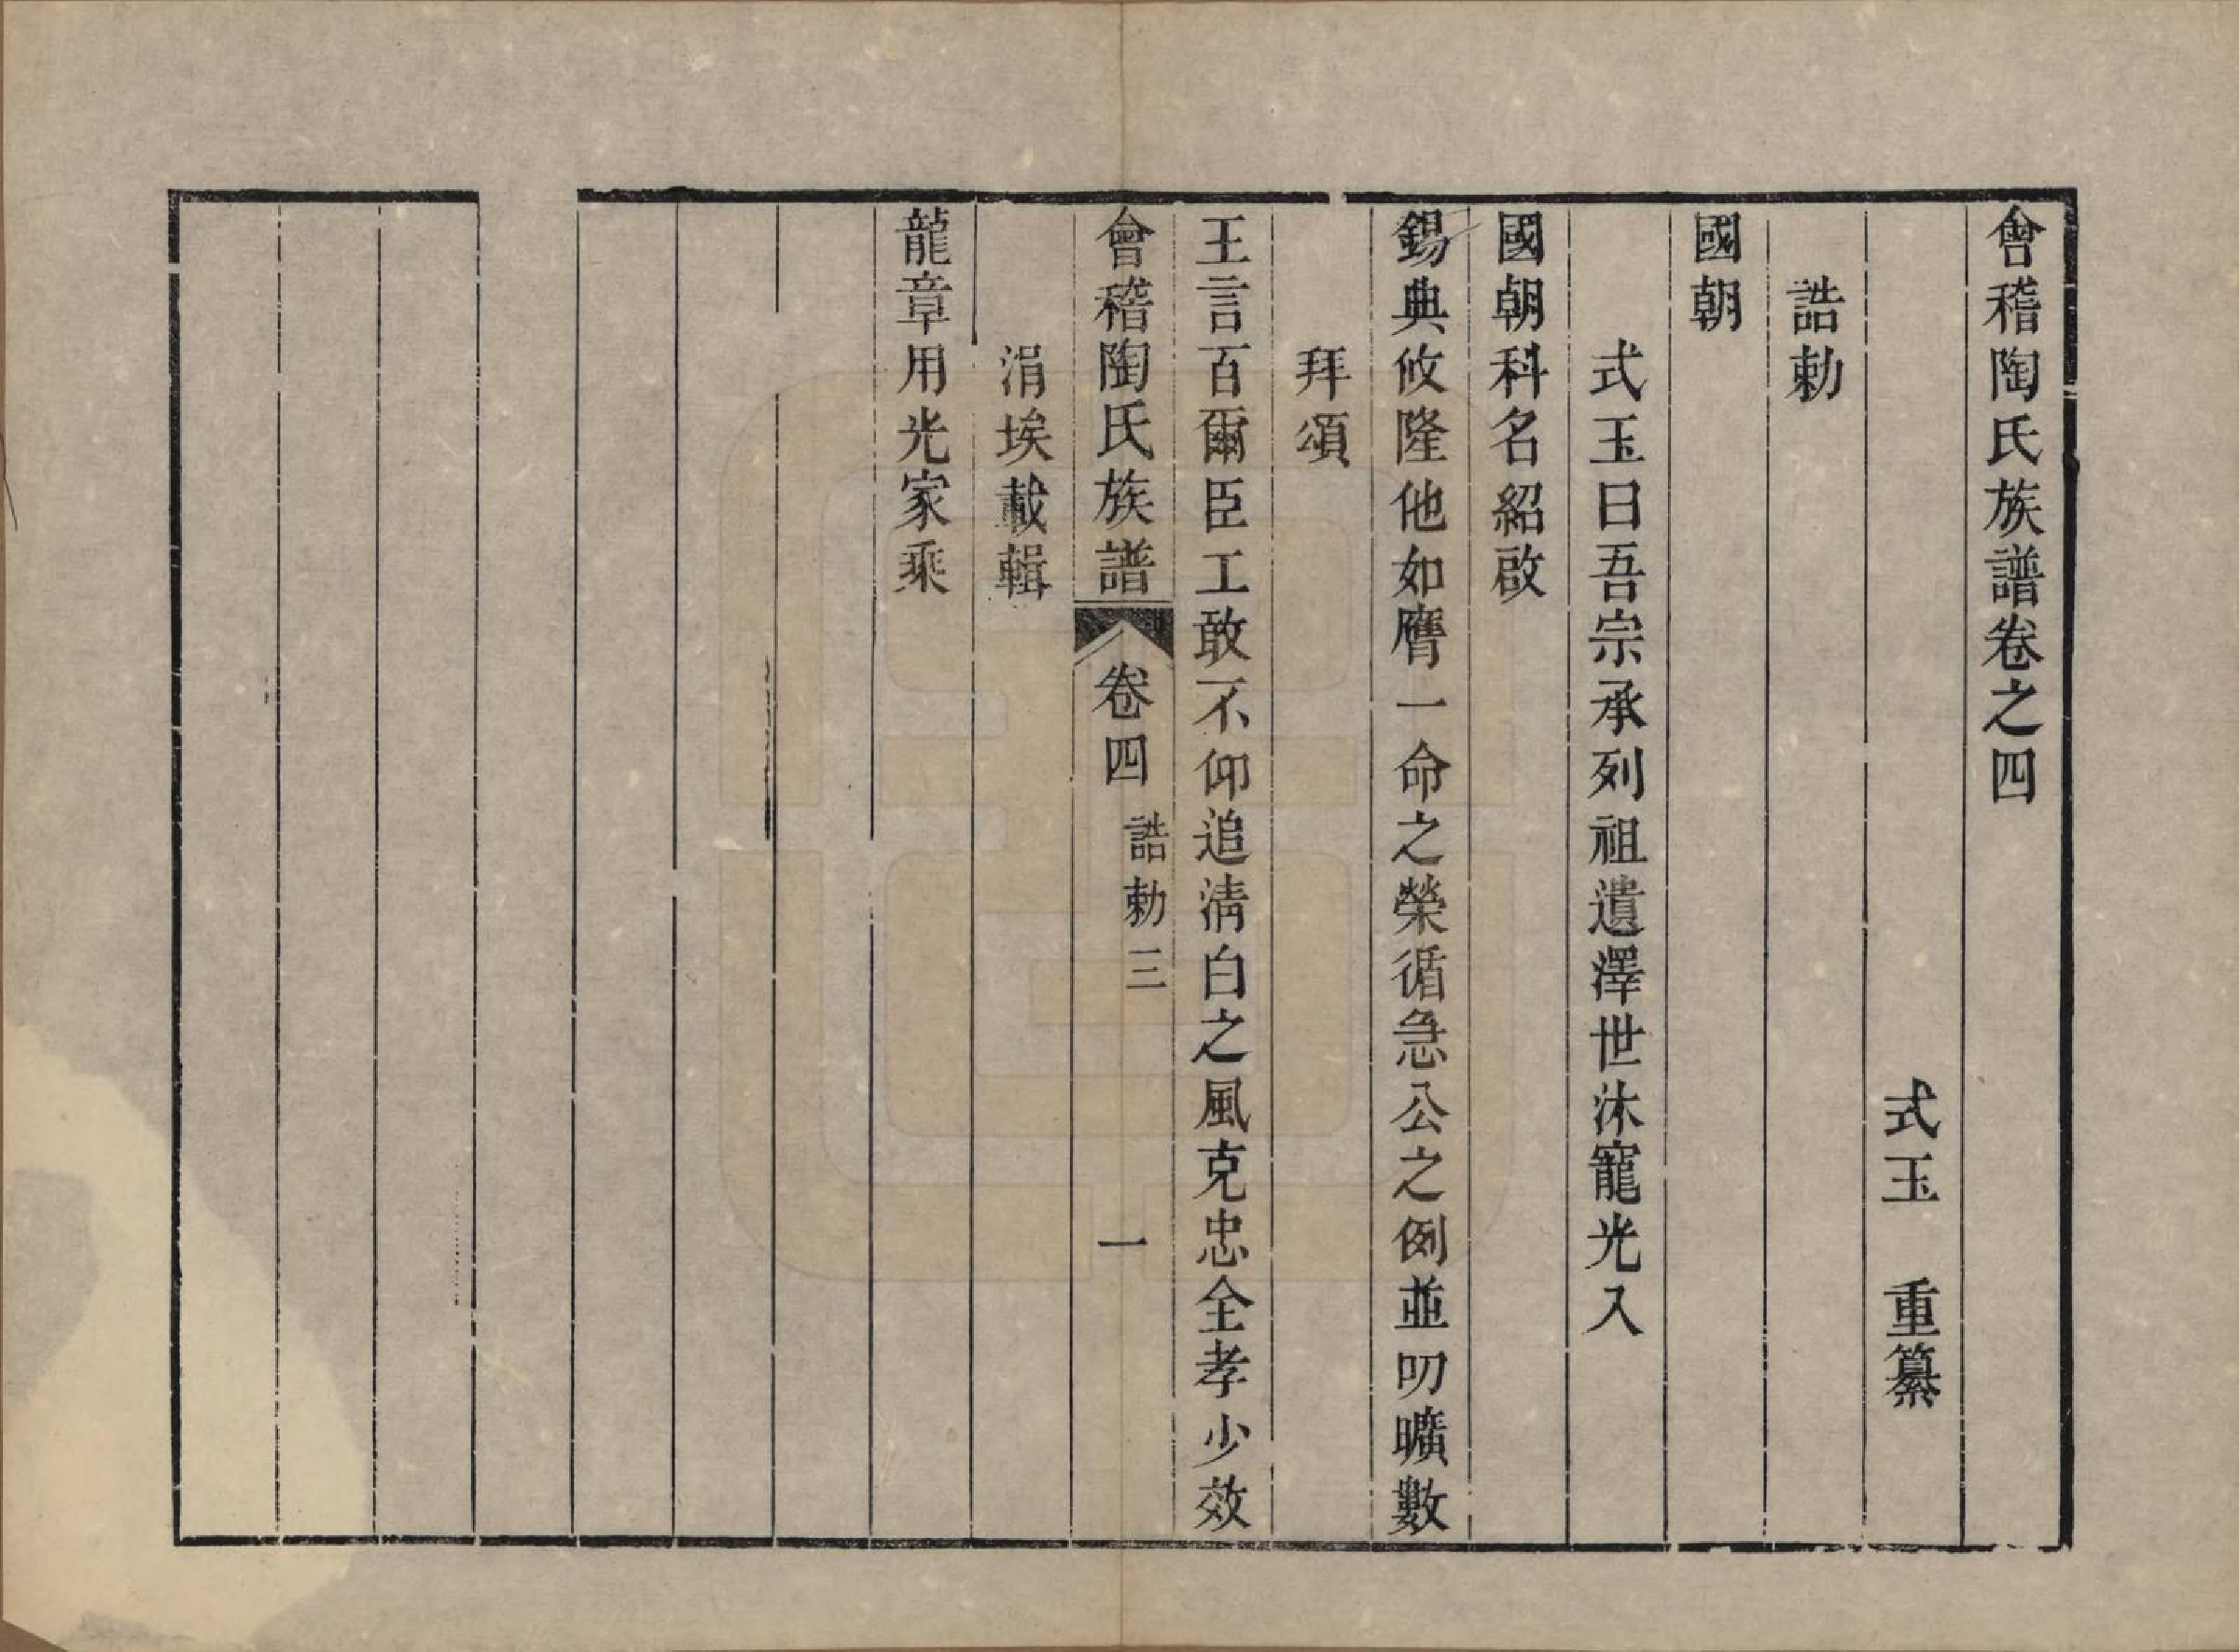 會稽陶氏族譜卷之四
式玉　重纂
誥勅
國朝
式玉曰吾宗承列祖遺澤世沐寵光入
國朝科名紹啟
錫典攸隆他如膺一命之榮循急公之例並叨曠數
拜頌
王言百爾臣工敢不仰追清白之風克忠全孝少效
會稽陶氏族譜　卷四　誥勅三　一
涓埃載輯
龍章用光家乘